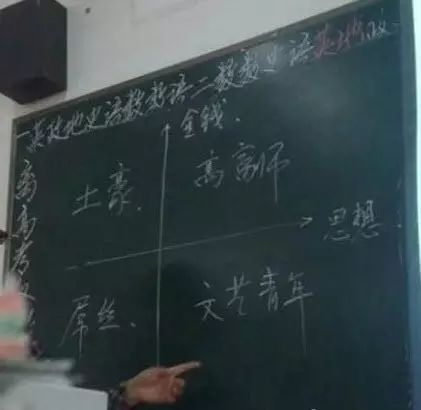 一英政地史语数数语二数数史语英地政
金钱.
土豪. 高富帅
思想
屌丝. 文艺青年
离高考